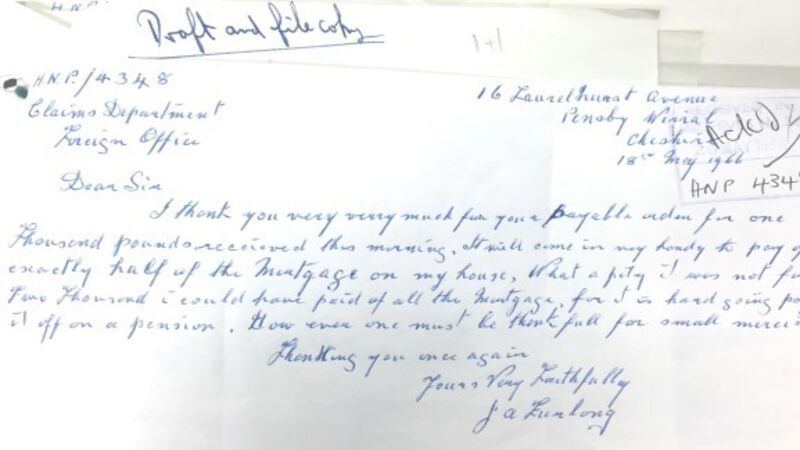 H.N.P.
Draft and file copy
1+1
H.N.P./4348
Claims Department
Foreign Office
16 Laurelhurst Avenue
Pensby Wirral
Cheshire
18th May 1966
Ack'd
HNP 434
Dear Sir
I thank you very verry much for your payable order for one
Thousand pounds reccieved this morning. It will come in very handy to pay of
exactly half of the Mortgage on my house, What a pity it was not for
Two Thousand i could have paid of all the Mortgage, for it is hard going pa
it off on a pension. How ever one must be thankfull for small merci
Thanking you once again
Yours Very Faithfully
J a